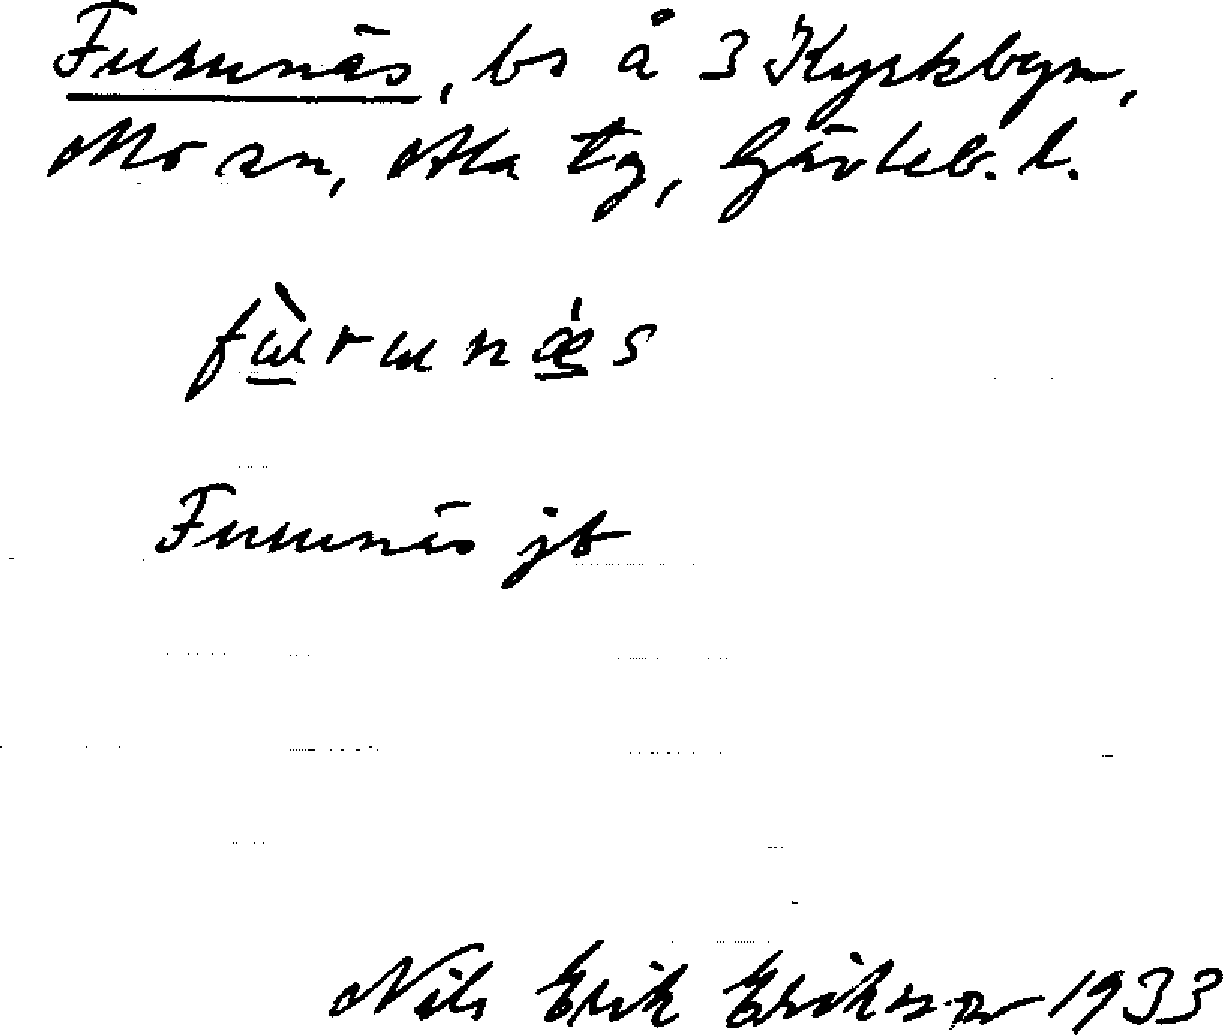 Furunäs, bs å 3 Kyrkbyn,
Mo sn, Ala tg, Gävleb. l.
fùrunǽs
Furunäs jb
Nils Erik Eriksson 1933